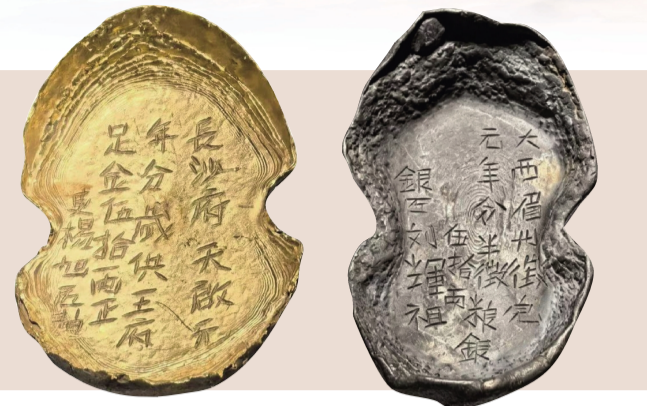 長沙府天啟元
年分歲供王府
足金伍拾両正
吏楊旭匠
大西眉州徵完
元年分半徵粮銀
伍拾両
銀匠刘祖